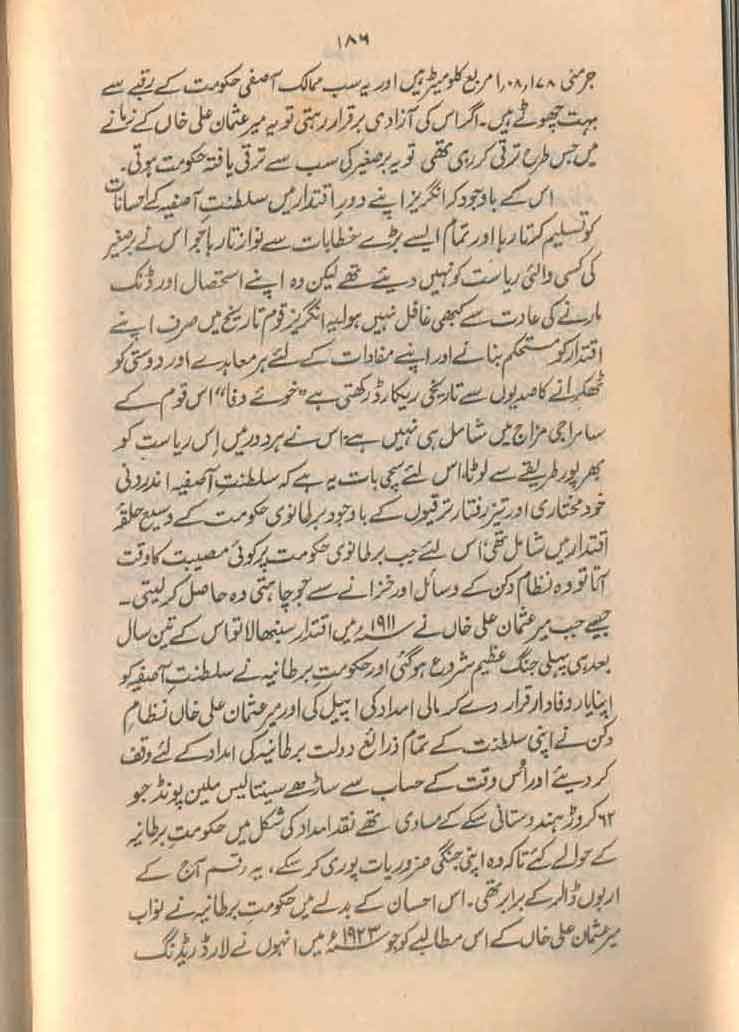 ۱۸۶
جرمنی ۱٫۰۸٫۱۷۸ مربع کلومیٹر ہیں اور یہ سب ممالک آصفی حکومت کے رقبے سے
بہت چھوٹے ہیں۔ اگر اس کی آزادی برقرار رہتی تو یہ میر عثمان علی خاں کے زمانے
میں جس طرح ترقی کر رہی تھی تو یہ برصغیر کی سب سے ترقی یافتہ حکومت ہوتی۔
اس کے باوجود کہ انگریز اپنے دورِ اقتدار میں سلطنتِ آصفیہ کے احسانات
کو تسلیم کرتا رہا اور تمام ایسے بڑے خطابات سے نوازتا رہا جو اس نے برصغیر
کی کسی والئی ریاست کو نہیں دیئے تھے لیکن وہ اپنے استحصال اور ڈنک
مارنے کی عادت سے کبھی غافل نہیں ہوا۔ یہ انگریز قوم تاریخ میں صرف اپنے
اقتدار کو مستحکم بنانے اور اپنے مفادات کے لئے ہر معاہدے اور دوستی کو
ٹھکرانے کا صدیوں سے تاریخی ریکارڈ رکھتی ہے "خوئے وفا" اس قوم کے
سامراجی مزاج میں شامل ہی نہیں ہے، اس نے ہر دور میں اِس ریاست کو
بھرپور طریقے سے لوٹا، اس لئے سچی بات یہ ہے کہ سلطنتِ آصفیہ اندرونی
خود مختاری اور تیز رفتار ترقیوں کے باوجود برطانوی حکومت کے وسیع حلقۂ
اقتدار میں شامل تھی، اس لئے جب برطانوی حکومت پر کوئی مصیبت کا وقت
آتا تو وہ نظام دکن کے وسائل اور خزانے سے جو چاہتی وہ حاصل کر لیتی۔
جیسے جب میر عثمان علی خاں نے ۱۹۱۱ء میں اقتدار سنبھالا تو اس کے تین سال
بعد ہی پہلی جنگ عظیم شروع ہو گئی اور حکومتِ برطانیہ نے سلطنتِ آصفیہ کو
اپنا یار وفادار قرار دے کر مالی امداد کی اپیل کی اور میر عثمان علی خاں نظامِ
دکن نے اپنی سلطنت کے تمام ذرائع دولت برطانیہ کی امداد کے لئے وقف
کر دیئے اور اُس وقت کے حساب سے ساڑھے سینتالیس ملین پونڈ جو
۶۲ کروڑ ہندوستانی سکے کے مساوی تھے نقد امداد کی شکل میں حکومتِ برطانیہ
کے حوالے کئے تاکہ وہ اپنی جنگی ضروریات پوری کر سکے، یہ رقم آج کے
اربوں ڈالر کے برابر تھی۔ اس احسان کے بدلے میں حکومتِ برطانیہ نے نواب
میر عثمان علی خاں کے اس مطالبے کو جو ۱۹۲۳ء میں انہوں نے لارڈ ریڈنگ